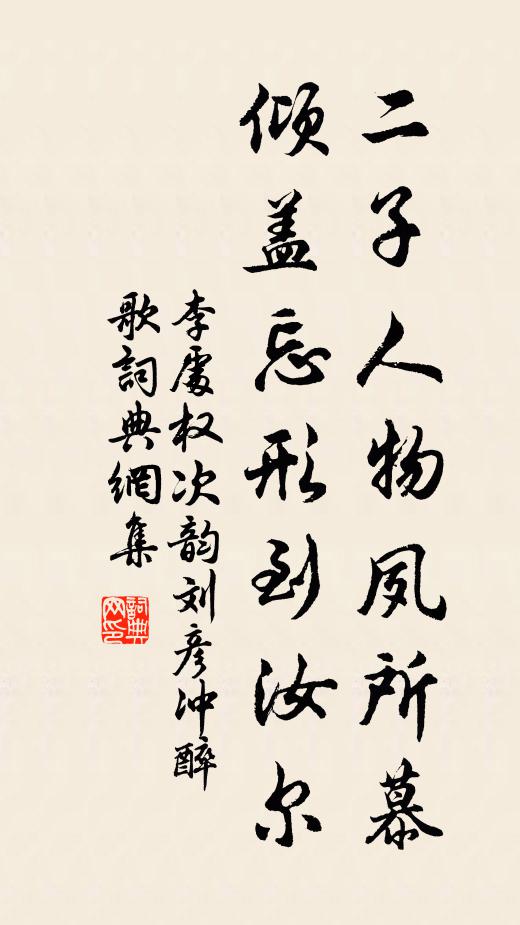 二子人物夙所慕
倾盖忘形到汝尔
李處权次韵刘彦冲醉
歌詞典網集
詞典网印